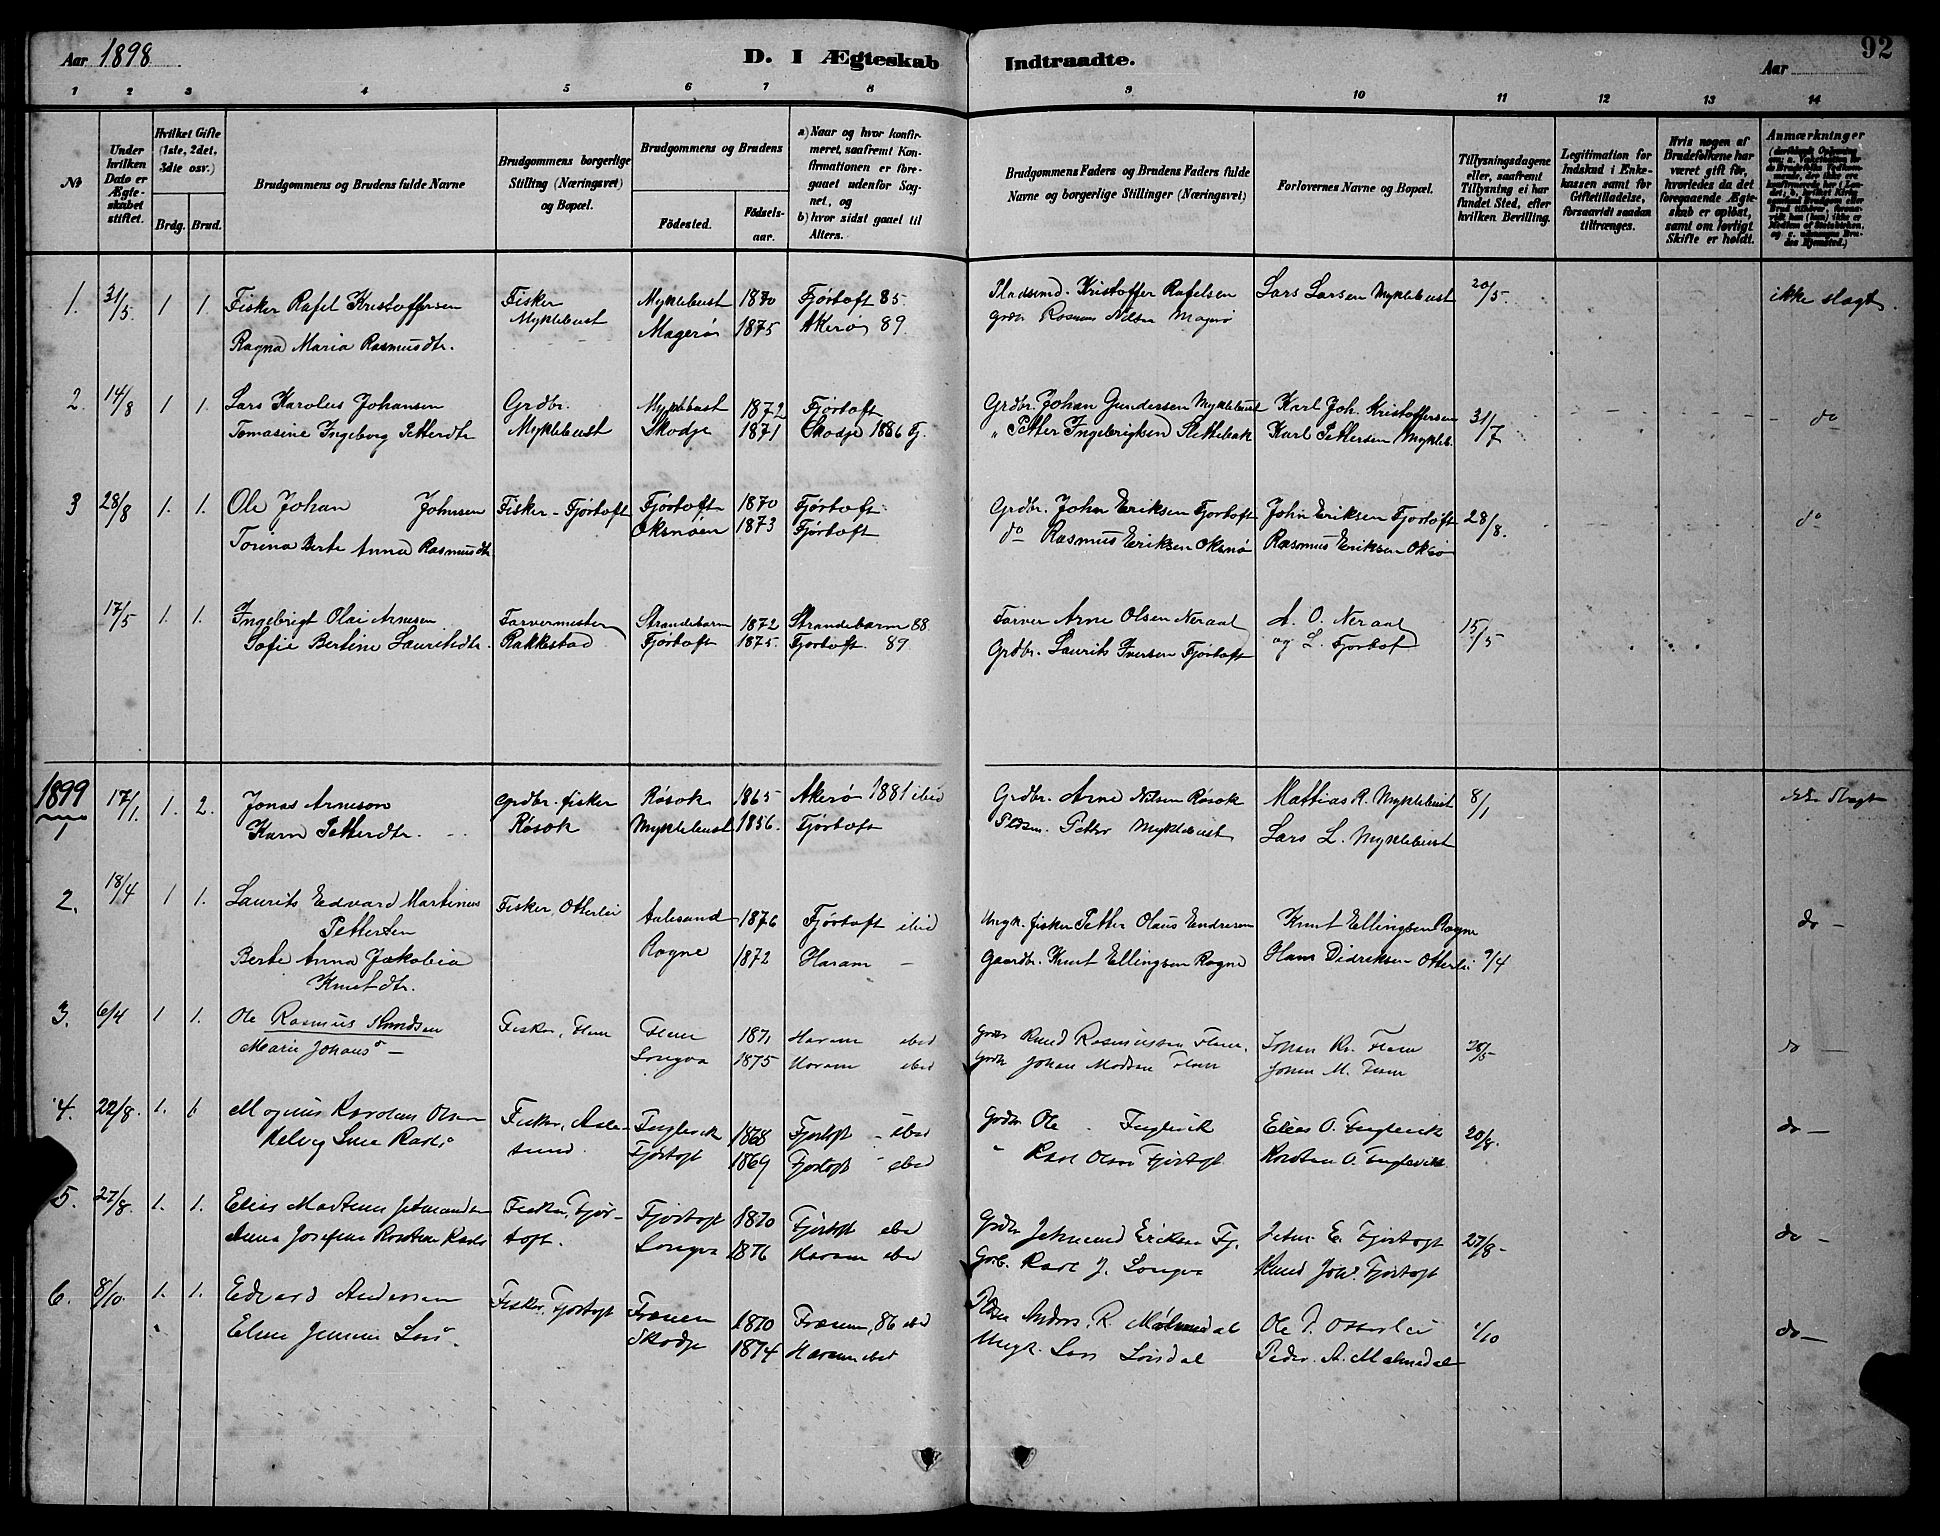 Aar 1898
D. I Ægteskab Indtraadte.
Aar
92
1 2 3 4 5 6 7 8 9 10 11 12 13 14
No
Under hvilken Dato er Ægteskabet stiftet.
Hvilket Gifte (1ste, 2det, 3die osv.)
Brdg. Brud.
Brudgommens og Brudens fulde Navne
Brudgommens borgerlige Stilling (Næringsvei) og Bopæl.
Brudgommens og Brudens
Fødested.
Fødselsaar.
a) Naar og hvor konfirmeret, saafremt Konfirmationen er foregaaet udenfor Sognet, og
b) hvor sidst gaaet til Alters.
Brudgommens Faders og Brudens Faders fulde Navne og borgerlige Stillinger (Næringsvei)
Forlovernes Navne og Bopæl.
Tillysningsdagene eller, saafremt Tillysning ei har fundet Sted, efter hvilken Bevilling.
Legitimation for Indskud i Enkekassen samt for Giftetilladelse, forsaavidt saadan tiltrænges.
Hvis nogen af Brudefolkene har været gift før, hvorledes da det foregaaende Ægteskab er opløst, samt om lovligt Skifte er holdt.
Anmærkninger
1. 31/5. 1 1. Fisker Rafel Kristoffersen Fisker Myklebust 1870 Fjørtoft 85. Pladsmd. Kristoffer Rafelsen Lars Larsen Myklebust 20/5. ikke slagt.
Ragna Maria Rasmusdtr. Myklebust Magerø 1875 Akerø 89. Grdbr Rasmus Nilsen Magerø
2. 14/8 1 1. Lars Karolus Johansen Grdbr. Myklebust 1872 Fjørtoft Grdbr. Johan Gundersen Myklebust Karl Joh. Kristoffersen 31/7 do
Tomasine Ingeborg Petterdtr Myklebust Skodje 1871 Skodje 1886 Fj. " Petter Ingebrigtsen Slettebak Karl Pettersen Mykleb.
3 28/8 1. 1. Ole Johan Johnsen Fisker - Fjørtoft Fjørtoft 1870 Fjørtoft Grdbr. John Eriksen Fjørtoft John Eriksen Fjørtoft 28/8. do
Torina Berte Anna Rasmusdtr Oksnøen 1873 Fjørtoft do Rasmus Eriksen Oksnø Rasmus Eriksen Oksnø
17/5 1. 1. Ingebrigt Olai Arnesen Farvermester Strandebarm 1872 Strandebarm 88. Farver Arne Olsen Neraal A. O. Neraal 15/5
Sofie Bertine Lauritsdtr. Rakkestad Fjørtoft 1875. Fjørtoft 89 Grdbr. Laurits Iversen Fjørtoft og L. Fjørtoft
1899
1 17/1. 1. 2. Jonas Arneson Grdbr. fisker Røsok 1865 Akerø 1881 ibid Grdbr. Arne Nilsen Røsok Mattias R. Myklebust 8/1 ikke slagt
Karn Petterdtr. Røsok Myklebust 1856. Fjørtoft Pldsm. Petter Myklebust Lars L. Myklebust
2. 18/4 1 1. Laurits Edvard Martinus Fisker, Otterlei Aalesund 1876 Fjørtoft ibid Ungk. fisker Petter Olaus Endresen Knut Ellingsen Rogne do -
Pettersen
Berte Anna Jakobia Rogne 1872 Haram - Gaardbr. Knut Ellingsen Rogne Hans Didriksen Otterlei 9/4
Knutdtr.
3. 6/4 1 1. Ole Rasmus Knudsen Fisker, Flem Flem 1871 Haram ibid Grdbr Knud Rasmussen Flem. Johan Kn. Flem 28/5 do -
Marie Johans - Longva 1875 Haram ibid Grdbr Johan Madsen Flem Johan M. Flem
4. 22/8. 1. Magnus Karolius Olsen Fisker, Aale- Fuglevik 1868 Fjørtoft - ibid Grdbr Ole Fuglevik Elias O. Fuglevik 20/8. do -
Karls sund. Fjørtoft 1869 Fjørtoft - ibid " Karl Olsen Fjørtoft O. Fuglevik
5. 27/8. 1. 1. Elias Fisker, Fjør- Fjørtoft 1870 Fjørtoft ibid Grdbr Jetmund Eriksen Fj. Jetm. E. Fjørtoft 27/8 - do -
Anna Josefine Karls toft. Longva 1876 Haram ibid Grdb. Karl J. Longva Knud Joh. Fjørtoft
6. 8/10. 1. 1. Edvard Andersen Fisker, Fjørtoft Frænen 1870 Frænen, 86 ibid Pldsm Anders R. Malmedal Ole P. Otterlei 1/10 do -
Skodje 1874 Haram ibid Ungk. Lars Peder A. Malmedal